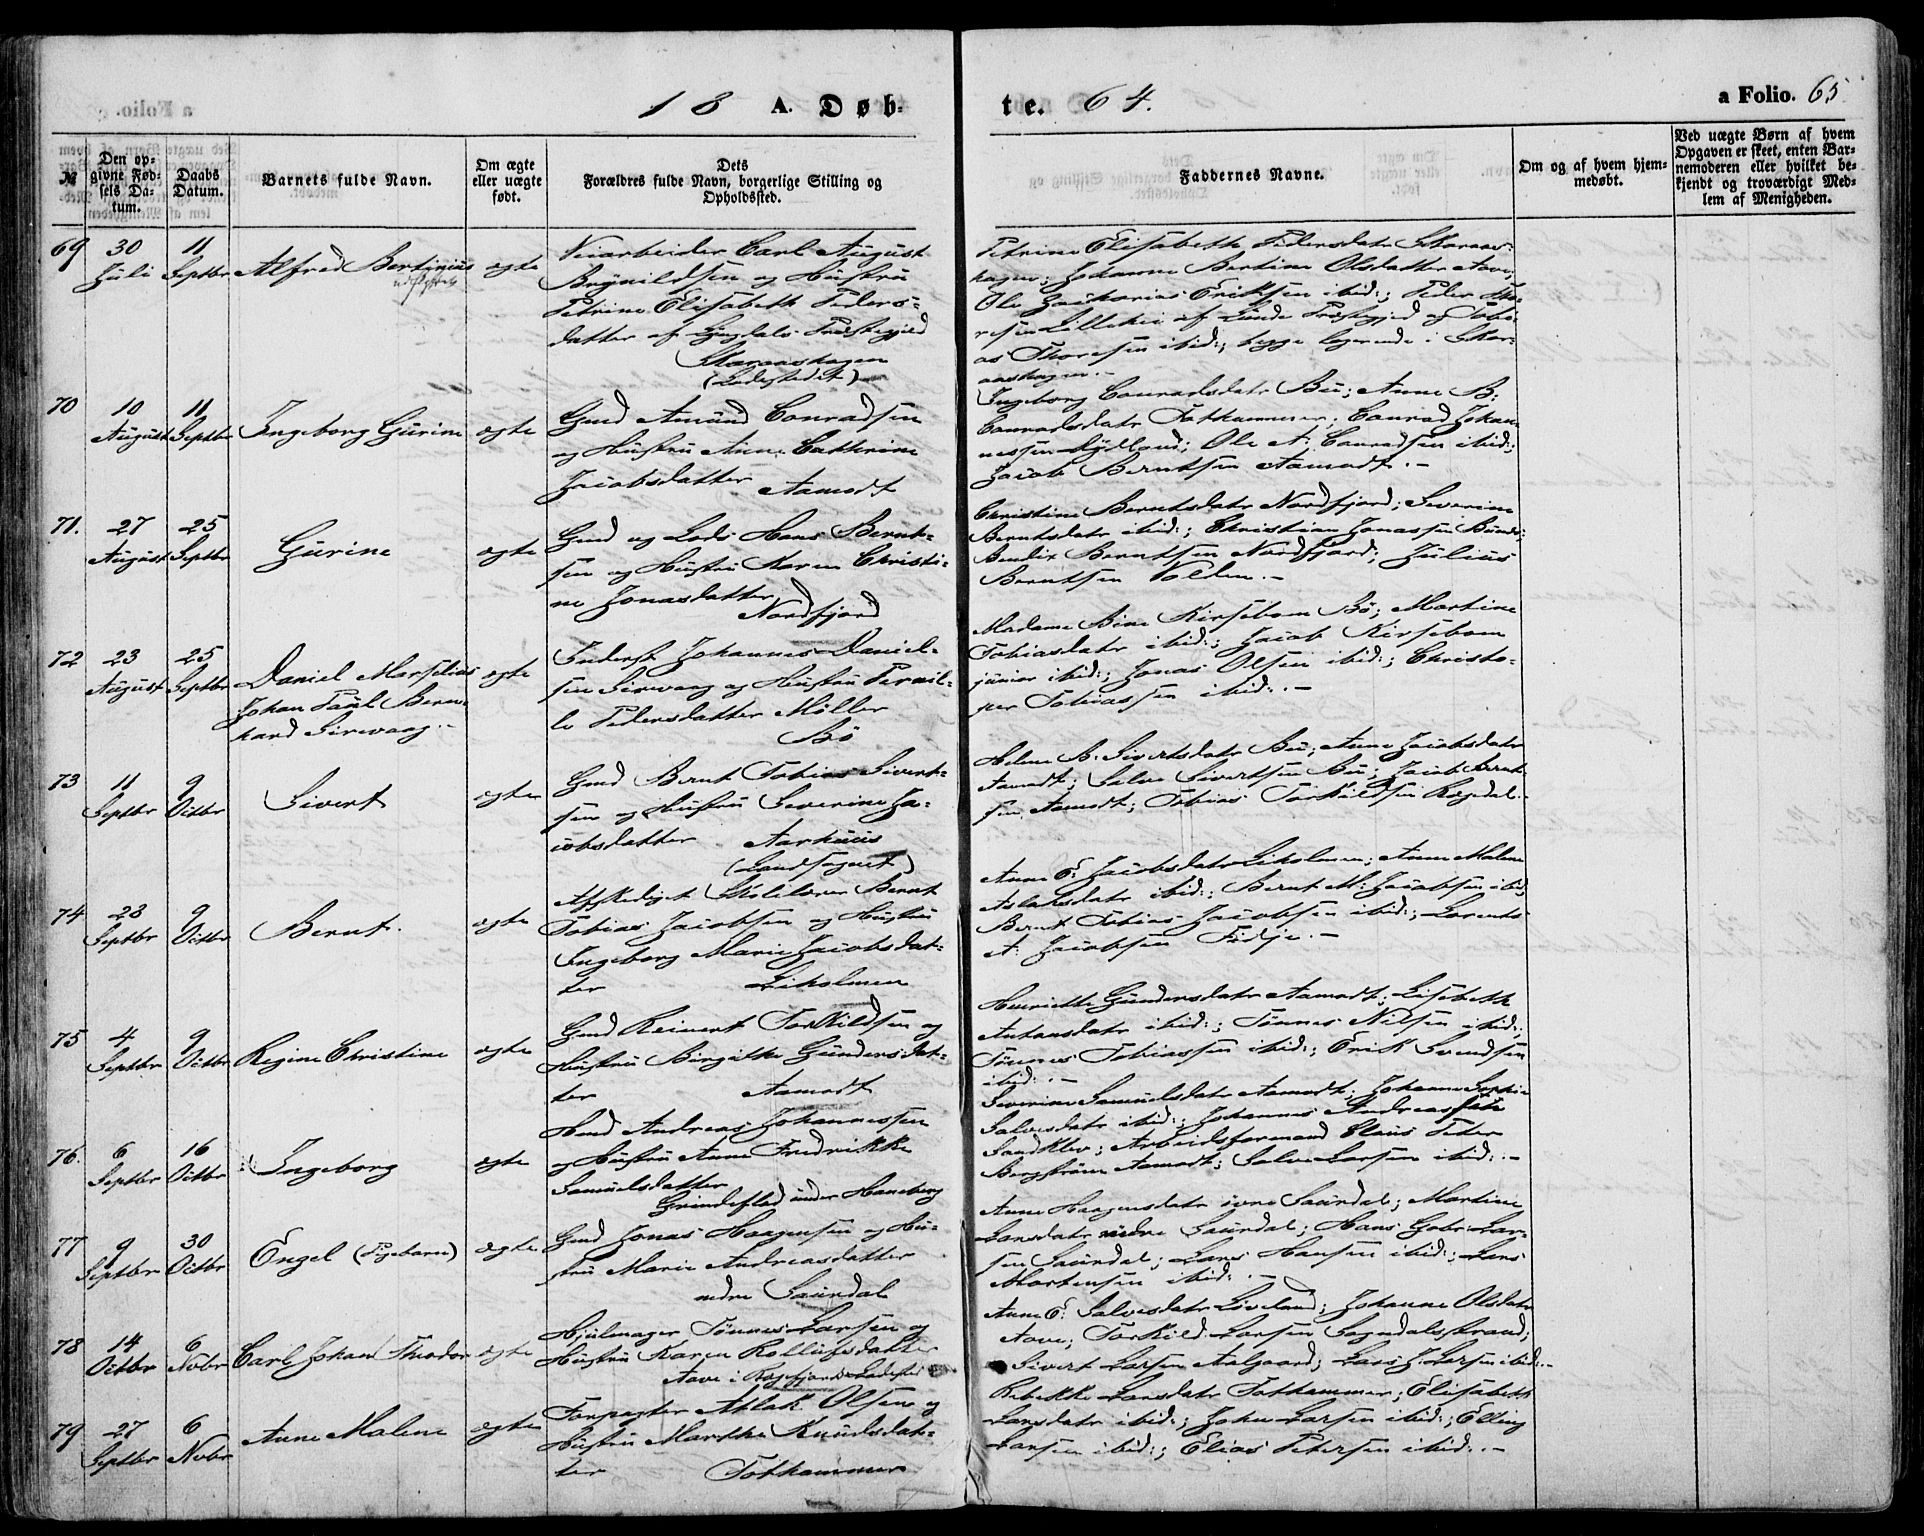 18 A. Døb-
te. 64.
a Folio. 65
№
Den op-
givne Fød-
sels Da-
tum.
Daabs
Datum.
Barnets fulde Navn.
Om ægte
eller uægte
født.
Dets
Forældres fulde Navn, borgerlige Stilling og
Opholdssted.
Faddernes Navne.
Om og af hvem hjem-
medøbt.
Ved uægte Børn af hvem
Opgaven er skeet, enten Bar-
nemoderen eller hvilket be-
kjendt og troværdigt Med-
lem af Menigheden.
69
30
Juli
11
Septbr
Alfred Bertinius
ægte
Veiarbeider Carl August
Brynildsen og Hustru
Petrine Elisabeth Peders-
datter af Lyngdals Præstegjeld
(Ladestedet)
Petrine Elisabeth Pedersdatr
Johanne Bertine Olsdatter Aave;
Ole Zacharias Eriksen ibid:; Peder Tho-
resen af Lunde Præstegjeld og Tobi-
as Thoresen ibid:, begge logerende i
70
10
August
11
Septbr
Ingeborg Gurine
ægte
Gmd Amund Conradsen
og Hustru Anne Cathrine
Jacobsdatter Aamodt
Ingeborg Conradsdatr Bu; Anne B:
Conradsdatr Fothammer; Conrad Johan-
nessen Rydland; Ole A: Conradsen ibid:;
Jacob Berntsen Aamodt.-
71.
27
August
25
Septbr
Gurine
ægte
Gmd og Lods Hans Bernt-
sen og Hustru Karen Christi-
ne Jonasdatter
Nordfjord
Christine Berntsdatr Nordfjord; Severine
Berntsdatr ibid:; Christian Jonassen
Bendix Berntsen Nordfjord; Julius
Berntsen Volden.-
72
23
August
25
Septbr
Daniel Marselius
Johan Paul Bern-
hard Sirevaag.-
ægte
Inderst Johannes Daniel-
sen Sirevaag og Hustru Pernil-
le Pedersdatter Møller
Bö
Madame Kirsebom Bö; Martine
Tobiasdatr ibid:; Jacob Kirsebom
junior ibid:; Jonas Olsen ibid:; Christo-
per Tobiassen ibid:.-
73
11
Septbr
9
Octbr
Sivert
ægte
Gmd Bernt Tobias Sivert-
sen og Hustru Severine Ja-
cobsdatter Aarhuus
(Landsognet)
Helene B: Sivertsdatr Bu; Anne Jacobsdatr
Aamodt; Salve Sivertsen Bu; Jacob Bernt-
sen Aamodt; Tobias Torkildsen Rægedal.
74
23
Septbr
9
Octbr
Bernt.
ægte
Afskediget Skolelærer Bernt
Tobias Jacobsen og Hustru
Ingeborg Marie Jacobsdat-
ter Liholmen
Anne E: Jacobsdatr Liholmen; Anne Malene
Aslaksdatr ibid:; Bernt M: Jacobsen ibid
Bernt Tobias Jacobsen ibid:; Lorents
A: Jacobsen Fidje.-
75
4
Septbr
9
Octbr
Regine Christine
ægte
Gmd Reinert Torkildsen og
Hustru Birgitte Gundersdat-
ter Aamodt
Henriette Gundersdatr Aamodt; Lisebeth
Antonsdatr ibid:; Tönnes Nilsen ibid:;
Tönnes Tobiassen ibid:; Erik Svendsen
ibid:.-
76.
6
Septbr
16
Octbr
Ingeborg
ægte
Hmd Andreas Johannessen
og Hustru Anne Fredrikke
Samuelsdatter
under Haneberg
Severine Samuelsdatr Aamodt; Johanne
Salvesdatr ibid:; Johannes Andreassen
Sandklev; Arbeidsformand Claus Peter
Bergström Aamodt; Salve Larsen ibid:.-
77
9
Septbr
30
Octbr
Engel (Pigebarn)
ægte
Gmd Jonas Haagensen og Hu-
stru Marie Andreasdatter
nedre Saurdal
Anne Haagensdatr övre Saurdal; Martine
Larsdatr nedre Saurdal; Hans Gabr Lar-
sen Saurdal; Lars Hansen ibid:; Lars
Mortensen ibid:.-
78
14
Octbr
6
Novbr
Carl Johan Theodor
ægte
Hjulmager Tönnes Larsen og
Hustru Karen Rolfsdatter
Aave i Rægefjord Ladested
Anne E: Salvesdatr Löveland; Johanne Olsdatr
Aave; Torkild Larsen Sogndalsstrand;
Sivert Larsen Aalgaard; Lars J. Larsen ibid:.-
79
27
Septbr
6
Novbr
Anne Malene
ægte
Forpagter Aslak Olsen og
Hustru Marthe Knudsdat-
ter Fothammer
Rebekke Larsdatr Fothammer; Elisabeth
Larsdatr ibid:; John Larsen ibid:; Elling
Larsen ibid:; Elias Petersen ibid:.-